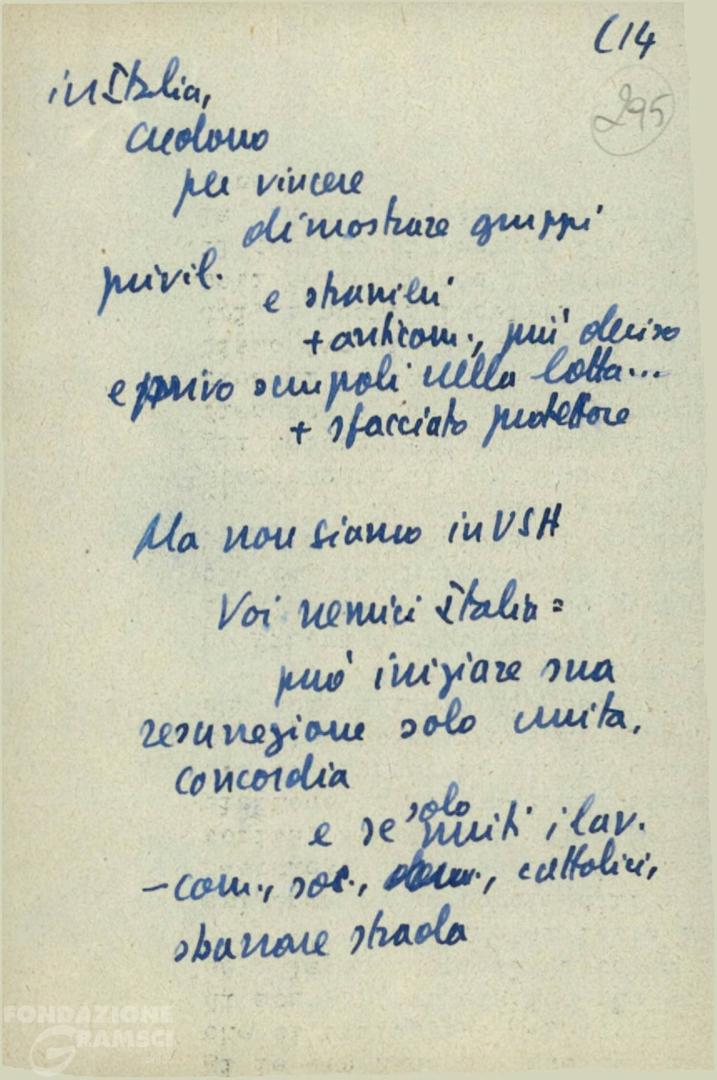 (14
295
in Italia,
credono
per vincere
dimostrare gruppi
privil.
e stranieri
+ anticom., più deciso
e privo scrupoli nella lotta...
+ sfacciato protettore
Ma non siamo in USA
Voi nemici Italia =
può iniziare sua
resurrezione solo unita,
concordia
solo
e se uniti i lav.
- com., soc., dem., cattolici,
sbarrare strada
FONDAZIONE
GRAMSCI